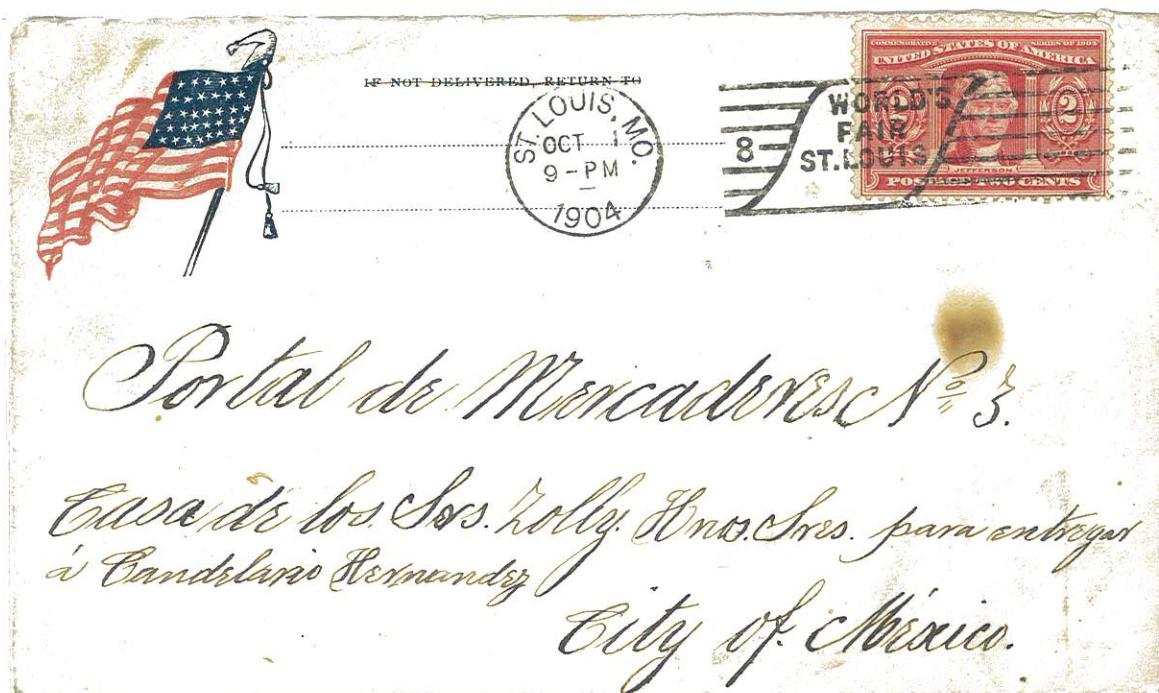 IF NOT DELIVERED, RETURN TO
ST. LOUIS, MO.
OCT 1
9-PM
1904
8
WORLD'S
FAIR
ST. LOUIS
COMMEMORATIVE SERIES OF 1904
UNITED STATES OF AMERICA
2 2
JEFFERSON
POSTAGE TWO CENTS
Portal de Mercaderes Nº 3.
Casa de los Srs. Zolly. Hnos. Sres. para entregar
á Candelario Hernandez
City of. México.